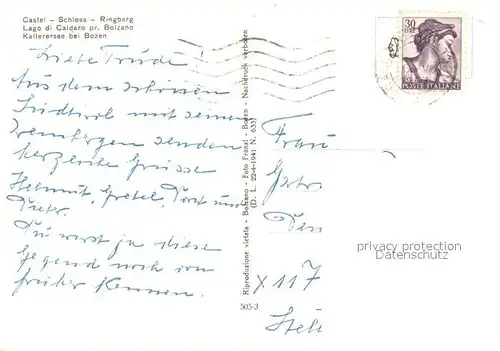 Castel - Schloss - Ringberg
Lago di Caldaro pr. Bolzano
Kalterersee bei Bozen
Liebe Trude
Aus dem schönen
Südtirol mit seinen
Weinbergen senden
herzliche Grüsse
Helmut, Gretel, und
Dieter.
Du wirst ja diese
Gegend noch von
früher kennen.
Riproduzione vietata - Bolzano - Foto Frenzl - Bozen - Nachdruck verboten
(D. L. 22-4-1941 N. 633)
505-3
30
LIRE
POSTE ITALIANE
Frau
X 117
privacy protection
Datenschutz